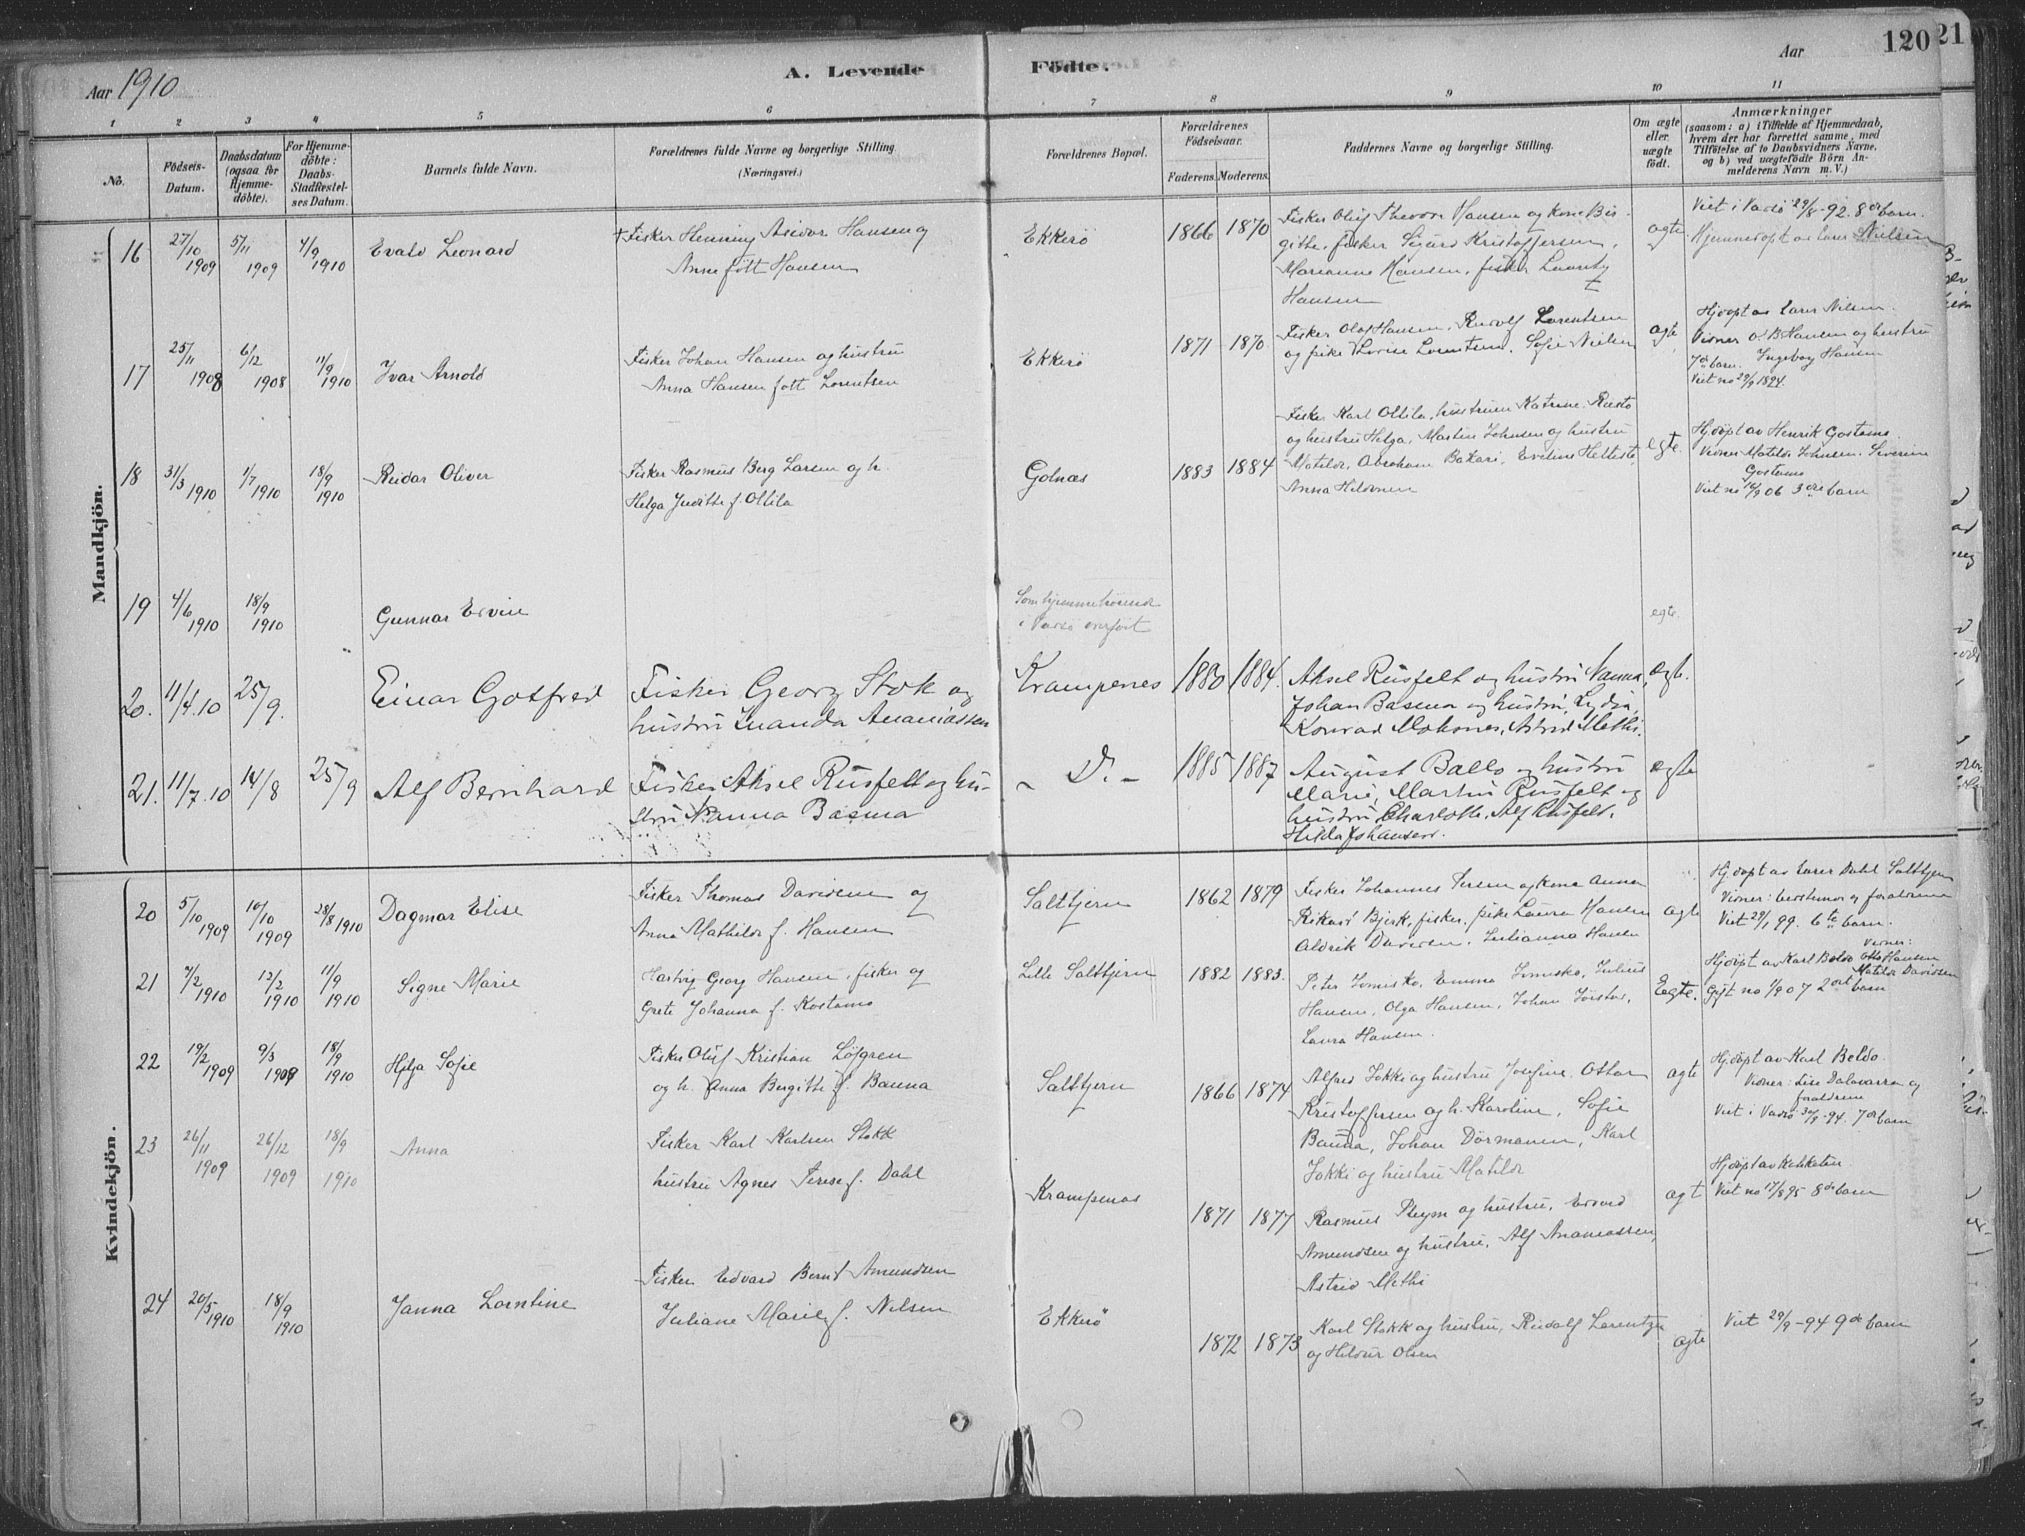 Aar 1910
A. Levende Födte.
Aar
120
21
1 2 3 4 5 6 7 8 9 10 11
No.
Födsels-Datum.
Daabsdatum (ogsaa for Hjemme-döbte).
For Hjemme-döbte: Daabs-Stadfæstel-ses Datum.
Barnets fulde Navn.
Forældrenes fulde Navne og borgerlige Stilling (Næringsvei.)
Forældrenes Bopæl.
Forældrenes Födselsaar.
Faderens. Moderens.
Faddernes Navne og borgerlige Stilling.
Om ægte eller uægte födt.
Anmærkninger
(saasom: a) i Tilfælde af Hjemmedaab, hvem der har forrettet samme, med Tilföielse af to Daabsvidners Navne, og b) ved uægtefödte Börn An-melderens Navn m. V.)
Mandkjön.
16 27/10 1909 5/11 1909 4/9 1910 Evald Leonard
+Fisker Henning Asidor Hansen og
Anne født Hansen
Ekkerö 1866 1870
Fisker Oluf Theodor Hansen og kone Bir-
gitte, fisker Sigurd Kristoffersen,
Marianne Hansen, fisker
Hansen
ægte
Viet i Vadsö 29/8-92. 8de barn.
Hjemmedøpt av Lærer Nielsen
17 25/11 1908 6/12 1908 11/9 1910 Ivar Arnold
Fisker Johan Hansen og hustru
Anna Hansen født Lorentsen
Ekkerö 1871 1870
Fisker Olaf Hansen, Rudolf Lorentsen
og pike Lovise Lorentsen. Sofie Nielsen
ægte
Hjdøpt av Lærer Nilsen.
Vidner O. B. Hansen og hustru
7de barn. Ingeborg Hansen
Viet no 29/9 1894.
18 31/3 1910 1/7 1910 18/9 1910 Reidar Oliver
Fisker Rasmus Berg Larsen og h.
Helga Juditte f. Ollila
Golnæs 1883 1884
Fisker Karl Ollila, hustruen Katrine.
og hustru Helga, Martin Johnsen og hustru
Matilde, Abraham Bakari, Eveline
Anna
egte.
Hjdøpt av Henrik Gostamo
Vidner Matilde Johnsen. Severin
Gostamo
Viet no 16/9 06 3die barn
19 4/6 1910 18/9 1910 Gunnar Ervin
Som hjemmehörende
i Vadsö overført
egte.
20. 11/4.10 25/9. Einar Gotfred
Fisker Georg Stok og
hustru Wanda Ananiassen
Krampenes 1880 1884.
Aksel Rusfelt og hustru Nanna,
Johan Basma og hustru, Lydia,
Konrad Mohones, Astrid Methi.
ægte.
21. 11/7.10 14/8 25/9 Alf Bernhard
Fisker Aksel Rusfelt og hu-
stru Nanna Basma
- D. - 1885 1887
August Ballo og hustru
Marie, Martin Rusfelt og
hustru Charlotte, Alf Rusfelt,
Hilda Johansen.
ægte
Kvindekjön.
20 5/10 1909 10/10 1909 28/8 1910 Dagmar Elise
Fisker Thomas Davidsen og
Anna Mathilde f. Hansen
Saltbjern 1862 1879
Fisker Johannes Persen og kone Anna
Rikard Bjerk, fisker, pike Laura Hansen
Aldrik Davidsen, Julianna Hansen
ægte
Hjdøpt av Lærer Dahl Saltbjern
Vidner: bestemor og forældrene
Viet 29/1 99. 6te barn.
21 7/2 1910 13/2 1910 11/9 1910 Signe Marie
Hartvig Georg Hansen, fisker og
Grete Johanna f. Kostamo
Lille Saltbjern 1882 1883.
Peter Lomisko, Emma Lomisko, Julius
Hansen, Olga Hansen, Johan
Laura Hansen.
Egte.
Vidner:
Hjdøpt av Karl Beldo Otto Hansen
Matilde Davidsen
Gift no 1/9 07 2det barn
22 19/2 1909 9/3 1909 18/9 1910 Helga Sofie
Fisker Oluf Kristian Löfgren
og h. Anna Bergitte f. Banna
Saltbjern 1866 1874
Alfred Jokki og hustru Josefine, Ottar
Kristoffersen og h. Karoline, Sofie
Banna, Johan Dörmanen, Karl
Jokki og hustru Matilde
ægte
Hjdøpt av Karl Beldo.
Vidner: Lise Dalavarra og
forældrene
Viet i Vadsö 30/9-94. 7de barn
23 26/11 1909 26/12 1909 18/9 1910 Anna
Fisker Karl Karlsen Stokk
hustru Agnes Terese f. Dahl
Krampenæs 1871 1877
Rasmus Pleym og hustru, Edvard
Amundsen og hustru, Alf Ananiassen,
Astrid Methi
ægt
Hjdøpt av Kateketen.
Viet no 17/8 95 8de barn
24 20/5 1910 18/9 1910 Janna Lorntine
Fisker Edvard Bernt Amundsen
Juliane Marie f. Nilsen
Ekkerö 1872 1873
Karl Stokk og hustru, Rudolf Lorentzen
og Hildur Olsen
ægte
Viet 29/9-94 9de barn